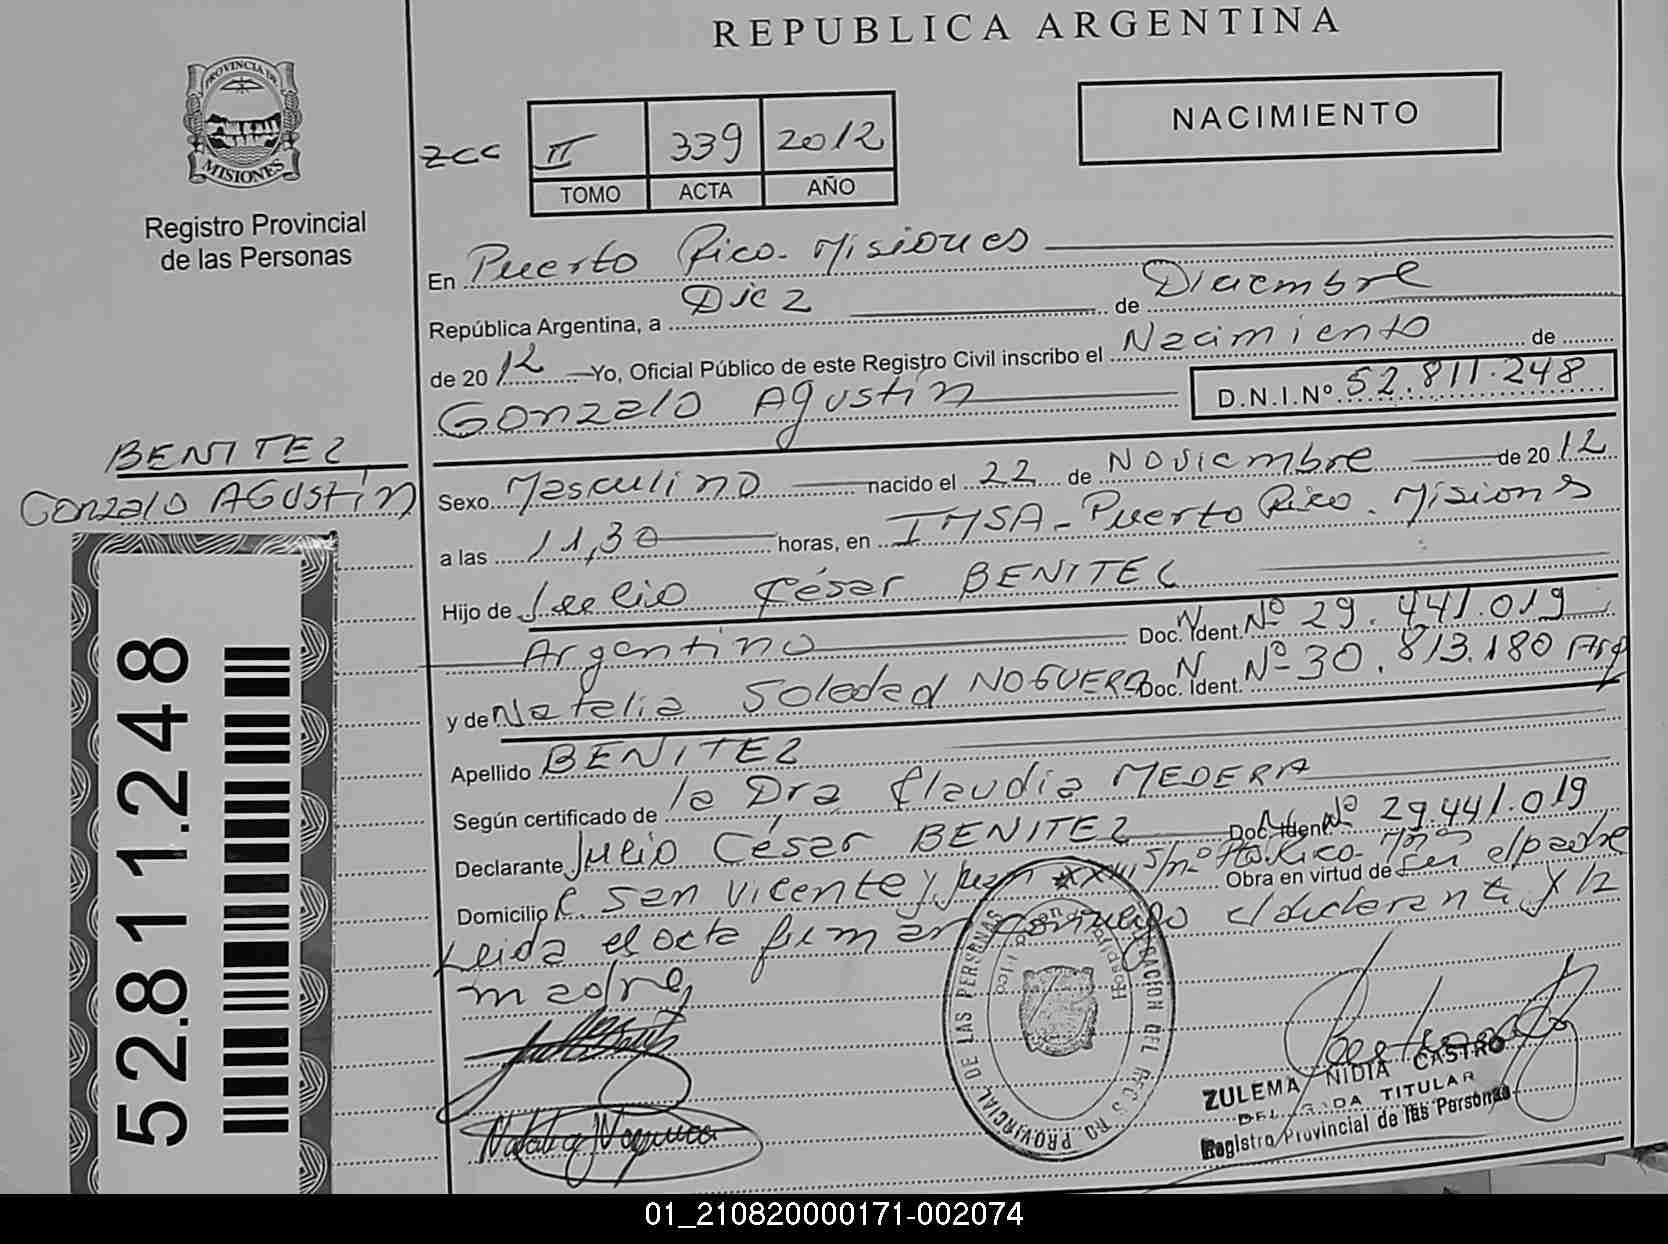 REPUBLICA ARGENTINA
PROVINCIA DE
MISIONES
Registro Provincial
de las Personas
NACIMIENTO
ZCC II 339 2012
TOMO ACTA AÑO
En Puerto Rico - Misiones
República Argentina, a Diez de Diciembre
de 2012 Yo, Oficial Público de este Registro Civil inscribo el Nacimiento de
Gonzalo Agustín D.N.I.Nº 52.811.248
BENITEZ
Gonzalo AGUSTÍN
Sexo Masculino nacido el 22 de Noviembre de 2012
a las 11,30 horas, en IMSA - Puerto Rico. Misiones
Hijo de Julio César BENITEZ
Argentino Doc. N. Ident. Nº 29.441.019
y de Natalia Soledad NOGUERA Doc. N. Ident. Nº 30.813.180 Arg
Apellido BENITEZ
Según certificado de la Dra Claudia MEDERA
Declarante Julio César BENITEZ Doc. N. Ident. Nº 29.441.019
Domicilio C. San Vicente y Juan XXIII S/nº Pto Rico. Mnes Obra en virtud de ser el padre
Leida el acta firman conmigo el declarante y la
madre,
Natalia Noguera
52.811.248
REGISTRO PROVINCIAL DE LAS PERSONAS
ZULEMA NIDIA CASTRO
DELEGADA TITULAR
Registro Provincial de las Personas
01_210820000171-002074